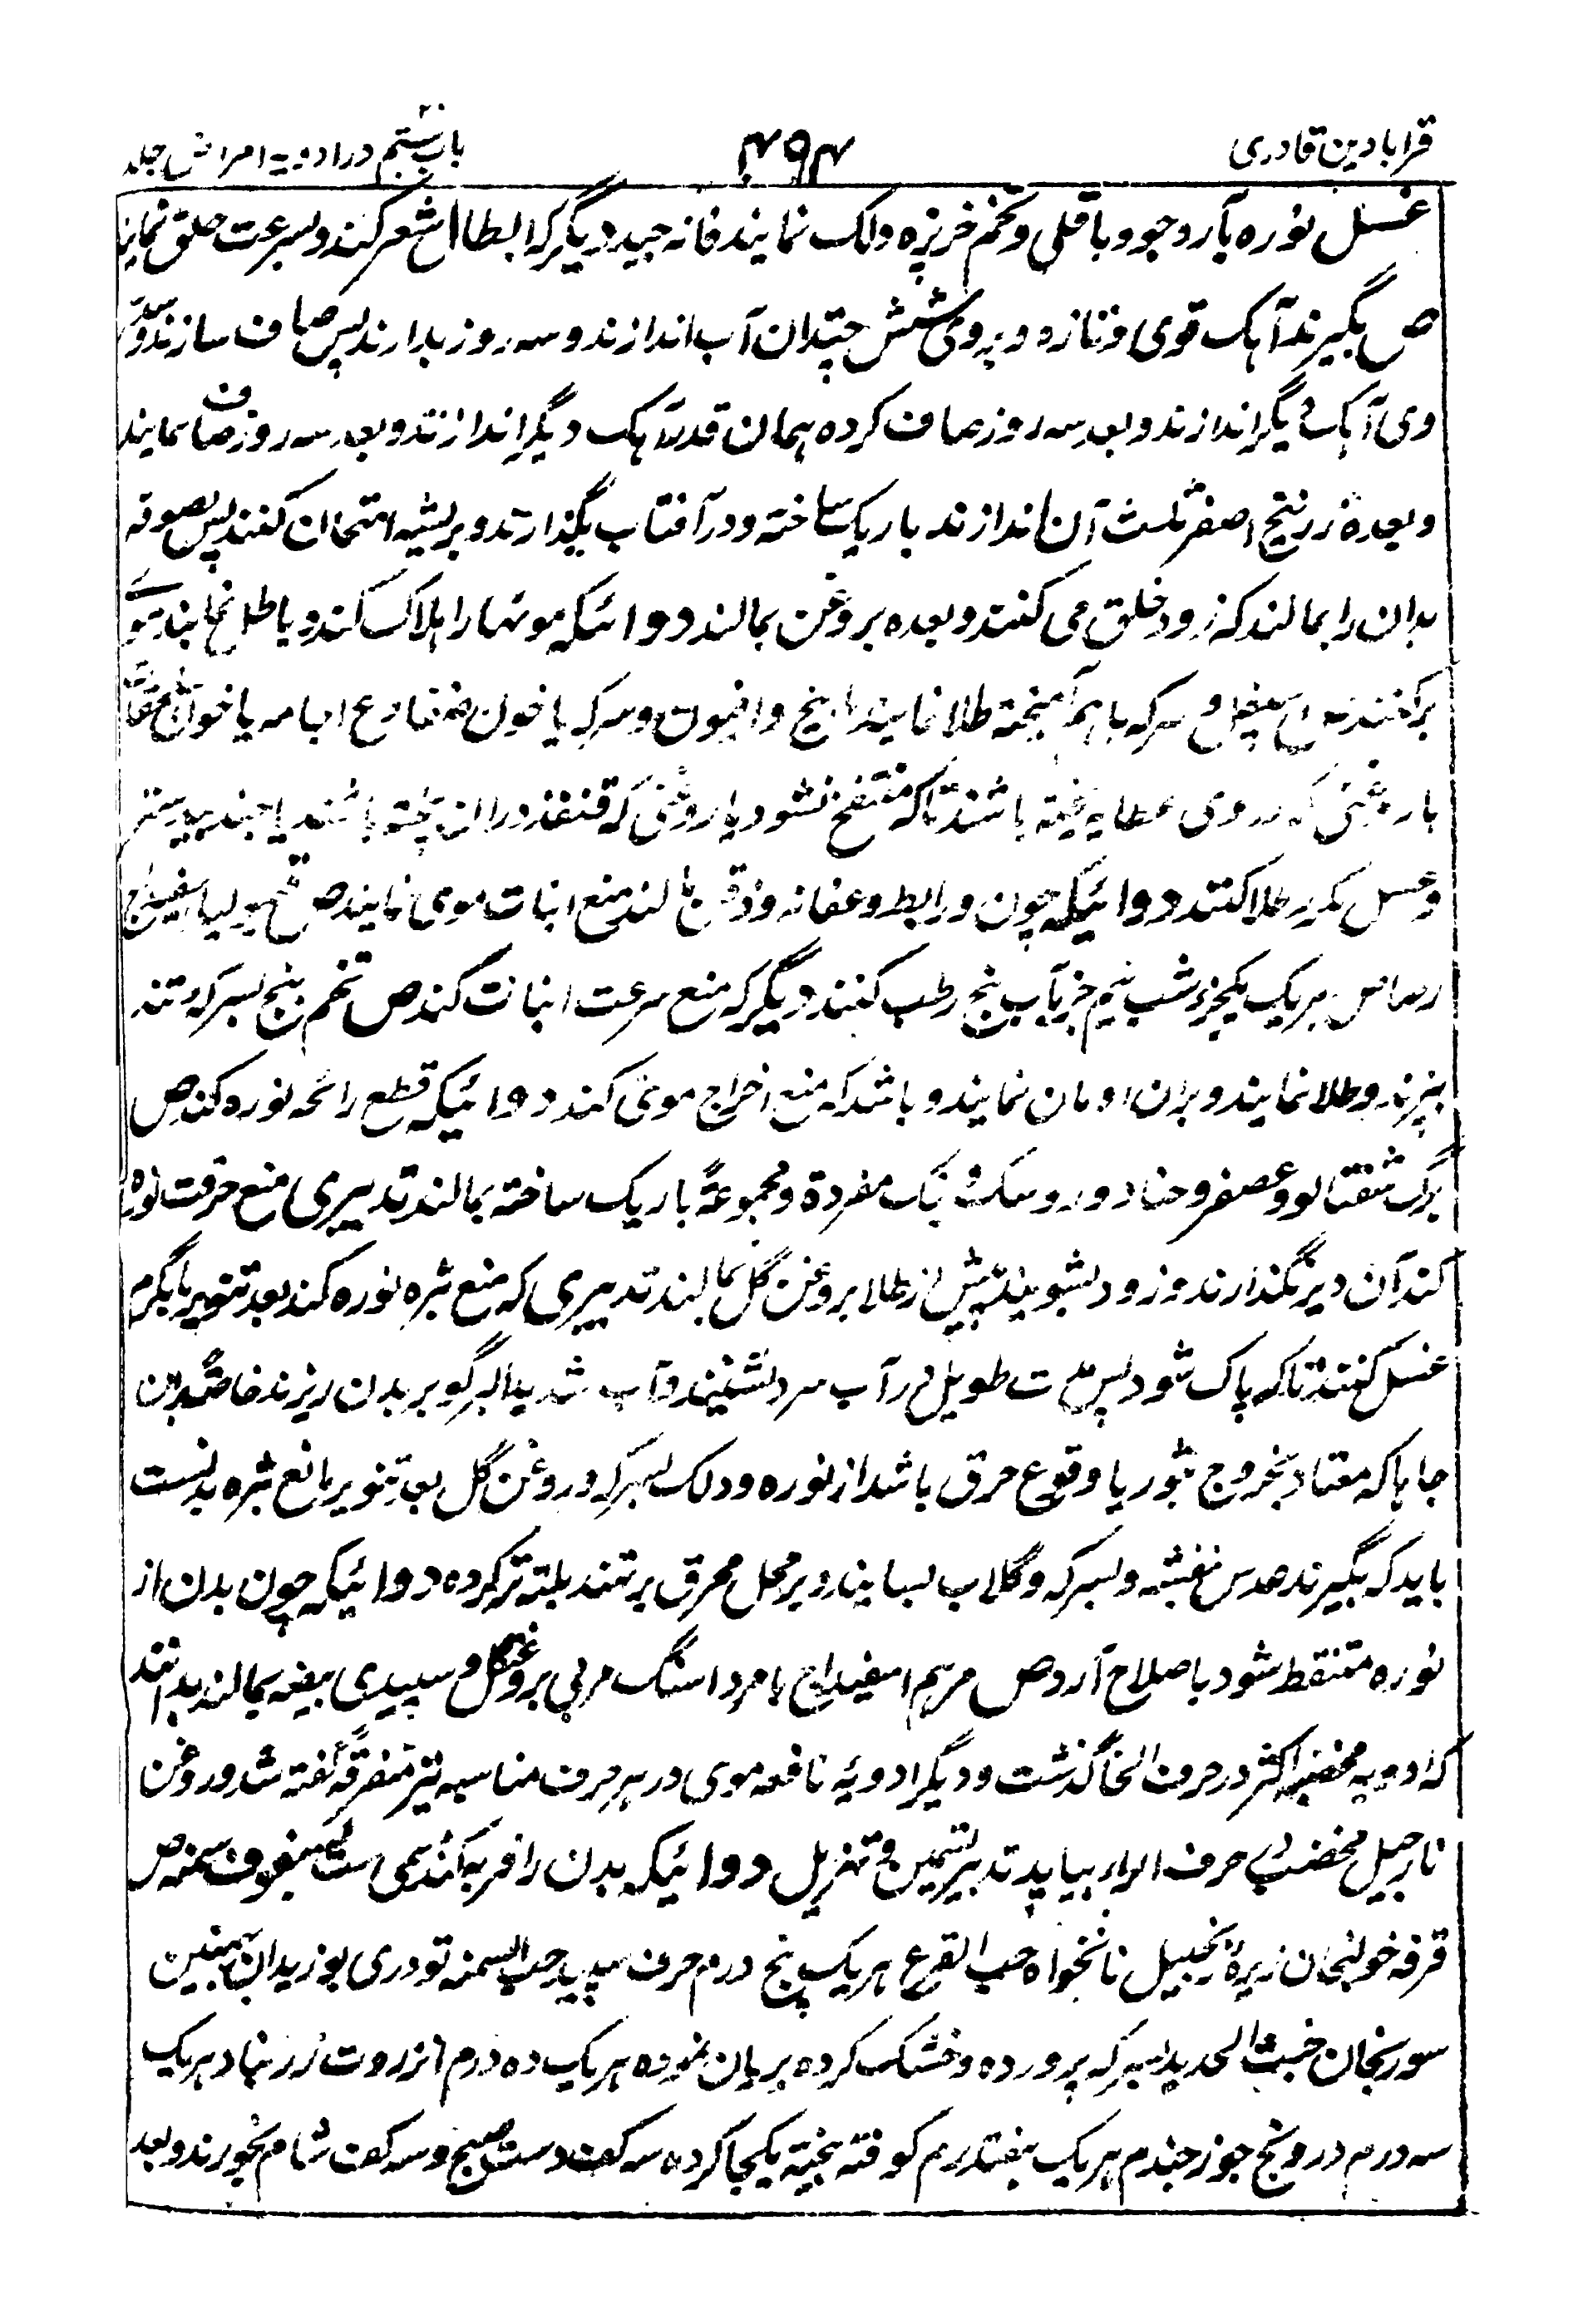 قرابادین قادری ۴۹۴ باب بستم در ادویه امراض جلد
غسل نوره بآرد جو و باقلی و تخم خرپزه و دلک نمایند فانه جید دیگر که ابطا شعر کند و بسرعت حلق نماید
ص بگیرند آهک قوی و تازه و بروی شش چندان آب اندازند و سه روز بدارند پس صاف سازند و در
وی آهک دیگر اندازند و بعد سه روز صاف کرده همان قدر آهک دیگر اندازند و بعد سه روز صاف نمایند
و بعده زرنیخ اصفر ثلث آن اندازند باریک ساخته و در آفتاب بگذارند و بریشه امتحان کنند پس بصوفه
بدان را بمالند که زود حلق می کنند و بعده بروغن بمالند دوائیکه مویها را هلاک کند و یا طلا نمایند موی
برکنند و سرکه باهم آمیخته طلا نمایند یا بنج و افیون و سرکه یا خون ضفادع اجامیه یا خون
یا روغنی که در وی عظایه پخته باشند تا که متفسخ شود یا روغنی که قنفذ در آن پخته باشند یا جندبیدستر
و عسل مکرر طلا کنند دوائیکه چون در ابط و عانه و ذقن بمالند منع انبات موی نمایند ص اسفیداج
رصاص هر یک یکجزو شب نیم جزو بآب بنج رطب کنند دیگر که منع سرعت انبات کند ص تخم بنج بسرکه تند
بپزند و طلا نمایند و بران ادمان نمایند و باشد که منع اخراج موی کند دوائیکه قطع رائحه نوره کند ص
برگ شفتالو و عصفر و حنا و ورد و سک مفردة و مجموعةً باریک ساخته بمالند تدبیری منع حرقت نوره
کند آن دیر نگذارند و زود بشویند و پیش از طلا بروغن گل بمالند تدبیری که منع بثره نوره کند بعد تنویر بآب گرم
غسل کنند تا که پاک شود پس مدت طویل در آب سرد نشینند و آب شدید البرد بر بدن ریزند خاصةً بدان
جا ها که معتاد بخروج بثور یا وقوع حرق باشد از نوره و دلک بسرکه و روغن گل بعد تنویر مانع بثره بدنست
باید که بگیرند عدس و بنفشه و بسرکه و گلاب بسایند و بر محل محرق برنهند بلته تر کرده دوائیکه چون بدن از
نوره متنقط شود باصلاح آرد ص مرهم اسفیداج یا مرداسنگ مربی بروغن گل و سپیدی بیضه بمالند بدانند
که ادویه مخضبه اکثر در حرف الخا گذشت و دیگر ادویه نافعه موی در هر حرف مناسبه نیز متفرقةً گفته شد و روغن
نارجیل مخضب در حرف الرا بیاید تدبیر تسمین و تهزیل دوائیکه بدن را فربه کند مسمی ست بسفوف سمنه ص
قرفه خولنجان زیره زنجبیل نانخواه حب القرع هر یک پنج درم حرف سپید حب السمنه تودری بوزیدان بهمنین
سورنجان خبث الحدید بسرکه پرورده و خشک کرده بریان نموده هر یک ده درم انزروت زرنباد هر یک
سه درم درونج جوز جندم هر یک هفتدرم کوفته بیخته یکجا کرده سه کف دست صبح و سه کف شام بخورند و بعد